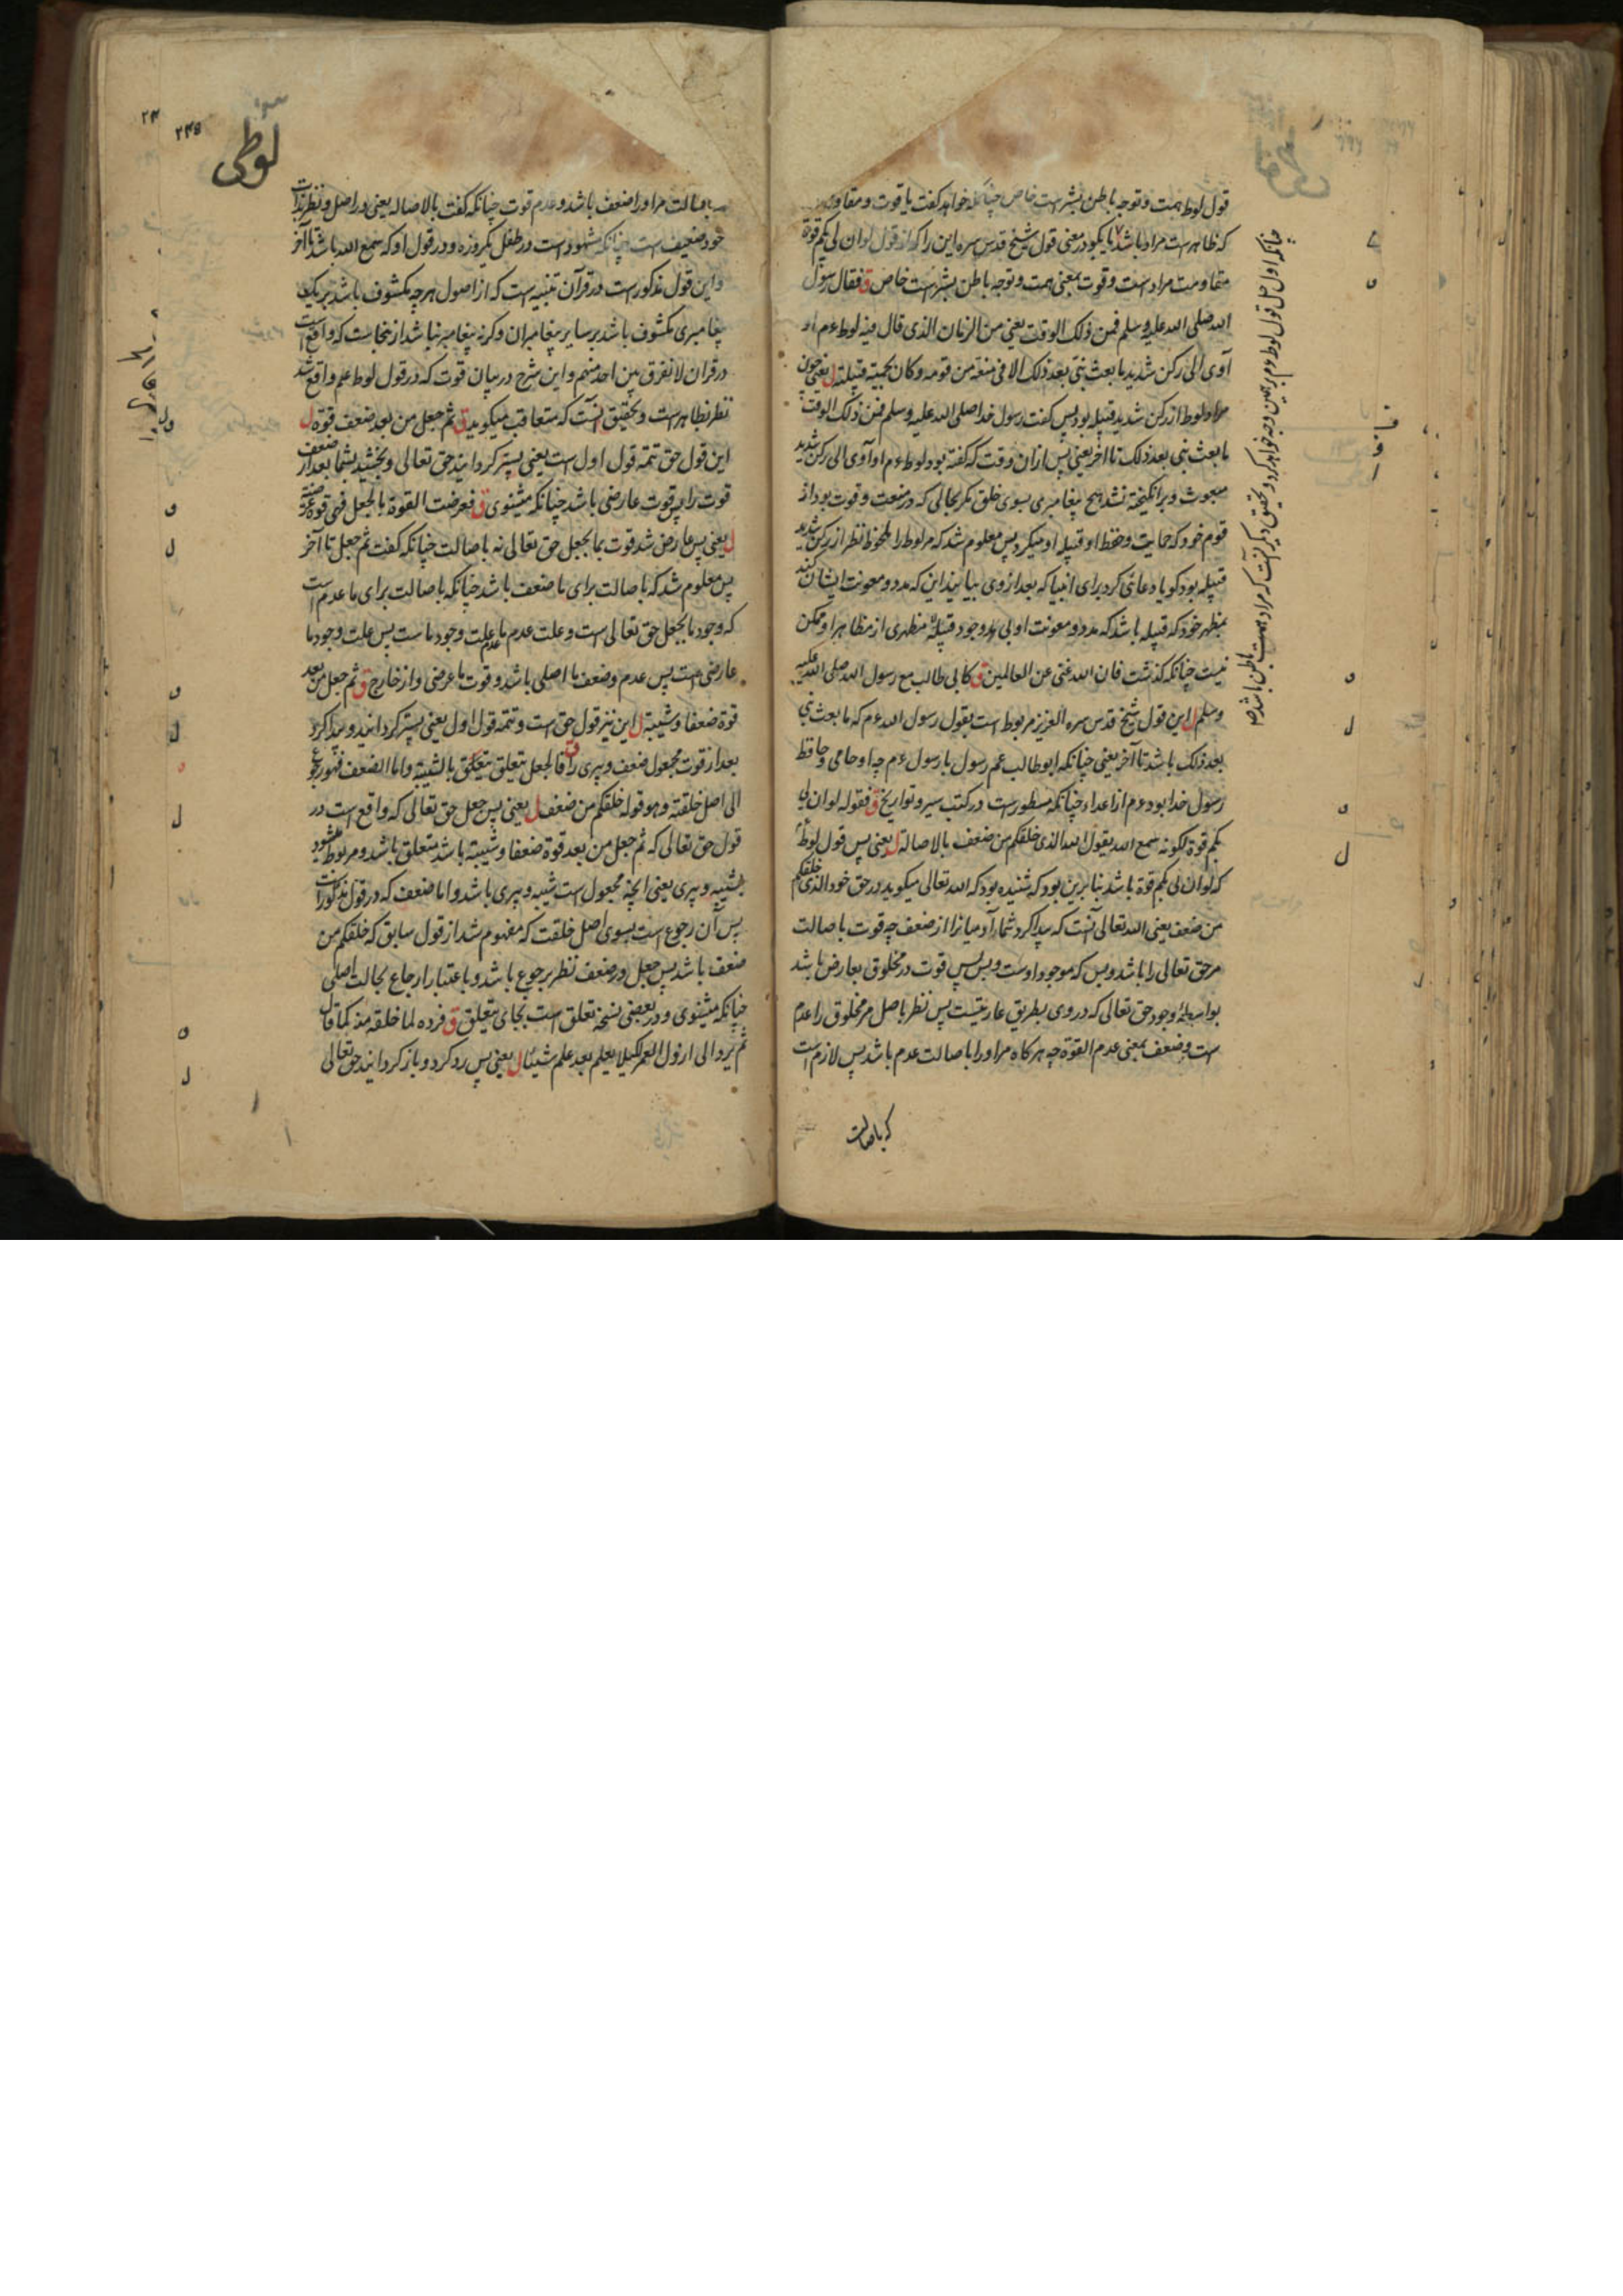 قول لوط همت و توجه باطن بشر است خاص چنانکه خواهد گفت یا قوت و مقاومت
که ظاهر است مراد باشد یا بگو در معنی قول شیخ قدس سره این را که از قول لوان لی بکم قوة
مقاومت مراد است و قوت بمعنی همت و توجه باطن بشر است خاص ق فقال رسول
الله صلی الله علیه وسلم فمن ذلک الوقت یعنی من الزمان الذی قال فیه لوط ءم او
آوی الی رکن شدید ما بعث نبی بعد ذلک الا فی منعة من قومه و کان یحمیه قبیلته ل یعنی چون
مراد لوط از رکن شدید قبیله بود پس گفت رسول خدا صلی الله علیه وسلم فمن ذلک الوقت
ما بعث نبی بعد ذلک تا اخر یعنی پس ازان وقت که گفته بود لوط ءم او آوی الی رکن شدید
مبعوث و برانگیخته نشد هیچ پیغامبری بسوی خلق مگر بحالی که در منعت و قوت بود از
قوم خود که حمایت و حفظ او قبیله او میکرد پس معلوم شد که مر لوط را ملحوظ نظر از رکن شدید
قبیله بود گویا دعائی کرد برای انبیا که بعد از وی بیایند این که مدد و معونت ایشان کند
بمظهر خود که قبیله باشد که مدد و معونت او بی وجود قبیله مظهری از مظاهر او ممکن
نیست چنانکه گذشت فان الله غنی عن العالمین ق کابی طالب مع رسول الله صلی الله علیه
وسلم ل این قول شیخ قدس سره العزیز مربوط است بقول رسول الله ءم که ما بعث نبی
بعد ذلک باشد تا آخر یعنی چنانکه ابو طالب عم رسول با رسول ءم چه او حامی و حافظ
رسول خدا بود ءم از اعدا چنانکه مسطور است در کتب سیر و تواریخ ق فقوله لوان لی
بکم قوة لکونه سمع الله یقول الله الذی خلقکم من ضعف بالاصالة ل یعنی پس قول لوط
که لوان لی بکم قوة باشد بنا برین بود که شنیده بود که الله تعالی میگوید در حق خود الذی خلقکم
من ضعف یعنی الله تعالی آنست که پیدا کرد شما آدمیانرا از ضعف چه قوت باصالت
مر حق تعالی را باشد و بس که موجود اوست و بس پس قوت در مخلوق بعارض باشد
بواسطه وجود حق تعالی که در وی بطریق عاریتست پس نظر باصل مر مخلوق را عدم
است وضعف بمعنی عدم القوة چه هرگاه مر او را باصالت عدم باشد پس لازم است
که باصالت
چنانکه اول حل قول لوط ءم بر همین وجه خواهد کرد و تحقیق دیگر آنست که مراد همت باطن باشد
لوطی
۲۴۵
باصالت مر او را ضعف باشد و عدم قوت چنانکه گفت بالاصاله یعنی در اصل و نظر بذات
خود ضعیف است چنانکه مشهود است در طفل یکروزه و در قول او که سمع الله باشد تا آخر
و این قول مذکور است در قرآن تنبیه است که از اصول هر چه مکشوف باشد بر یک
پیغامبری مکشوف باشد بر سایر پیغامبران و گرنه پیغامبر نباشد از نجاست که واقع است
در قران لا نفرق بین احد منهم و این شرح در بیان قوت که در قول لوط علم واقع شد
نظر بظاهر است و تحقیق آنست که متعاقب میگوید ق ثم جعل من بعد ضعف قوة ل
این قول حق تتمه قول اول است یعنی پستر گردانید حق تعالی و بخشید بشما بعد از ضعف
قوت را پس قوت عارضی باشد چنانکه میشنوی ق فعرضت القوة بالجعل فهی قوة عرضیة
ل یعنی پس عارض شد قوت بما بجعل حق تعالی نه باصالت چنانکه گفت ثم جعل تا آخر
پس معلوم شد که باصالت برای ما ضعف باشد چنانکه باصالت برای ما عدم است
که وجود ما بجعل حق تعالی است و علت عدم ما عدم علت وجود ماست پس علت وجود ما
عارضی است پس عدم وضعف ما اصلی باشد و قوت ما عرضی و از خارج ق ثم جعل من بعد
قوة ضعفا و شیبة ل این نیز قول حق است و تتمه قول اول یعنی پستر گردانید و پیدا کرد
بعد از قوت مجعول ضعف و پیری را ق فالجعل یتعلق بالشیبة و اما الضعف فهو رجوع
الی اصل خلقته و هو قوله خلقکم من ضعف ل یعنی پس جعل حق تعالی که واقع است در
قول حق تعالی که ثم جعل من بعد قوة ضعفا و شیبة باشد متعلق باشد و مربوط شود
بشیبه و پیری یعنی آنچه مجعول است شیبه و پیری باشد و اما ضعف که در قول مذکور است
پس آن رجوع است بسوی اصل خلقت که مفهوم شد از قول سابق که خلقکم من
ضعف باشد پس جعل در ضعف نظر برجوع باشد و باعتبار ارجاع بحالت اصلی
چنانکه میشنوی و در بعضی نسخه تعلق است بجای یتعلق ق فرده لما خلقه منه کما قال
ثم یرد الی ارذل العمر لکیلا یعلم بعد علم شیئا ل یعنی پس رد کرد و باز گردانید حق تعالی